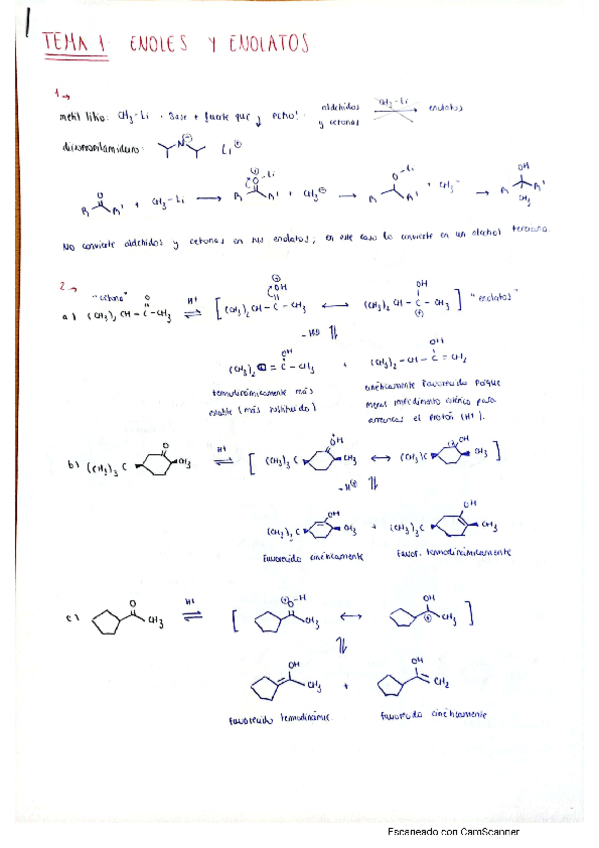 TEMA 1. ENOLES Y ENOLATOS
1→
metil litio: CH3-Li
aldehidos y cetonas
CH3-Li
enolatos
Li ⊕
R R' + CH3-Li → R R' + CH3⊖ → R R' + CH3⁻ → R R'
O O-Li O-Li OH
CH3
No convierte aldehidos y cetonas en sus enolatos; en este caso lo convierte en un alcohol terciario.
2→
"cetona"
a) (CH3)2 CH - C - CH3 ⇌ [ (CH3)2 CH - C - CH3 ↔ (CH3)2 CH - C - CH3 ] "enolatos"
O H+ OH OH
-H⊕
(CH3)2 C = C - CH3 + (CH3)2 - CH - C = CH2
OH OH
termodinámicamente más estable (más sustituido)
cinéticamente favorecido porque menos impedimento estérico para arrancar el protón (H+).
b) (CH3)3 C CH3 ⇌ [ (CH3)3 C CH3 ↔ (CH3)3C CH3 ]
O H+ OH OH
-H⊕
(CH3)3 C CH3 + (CH3)3 C CH3
OH OH
Favorecido cinéticamente
Favor. termodinámicamente
c) CH3 ⇌ [ CH3 ↔ CH3 ]
O H+ O-H OH
CH3 + CH2
OH OH
Favorecido termodinámic.
Favorecido cinéticamente
Escaneado con CamScanner